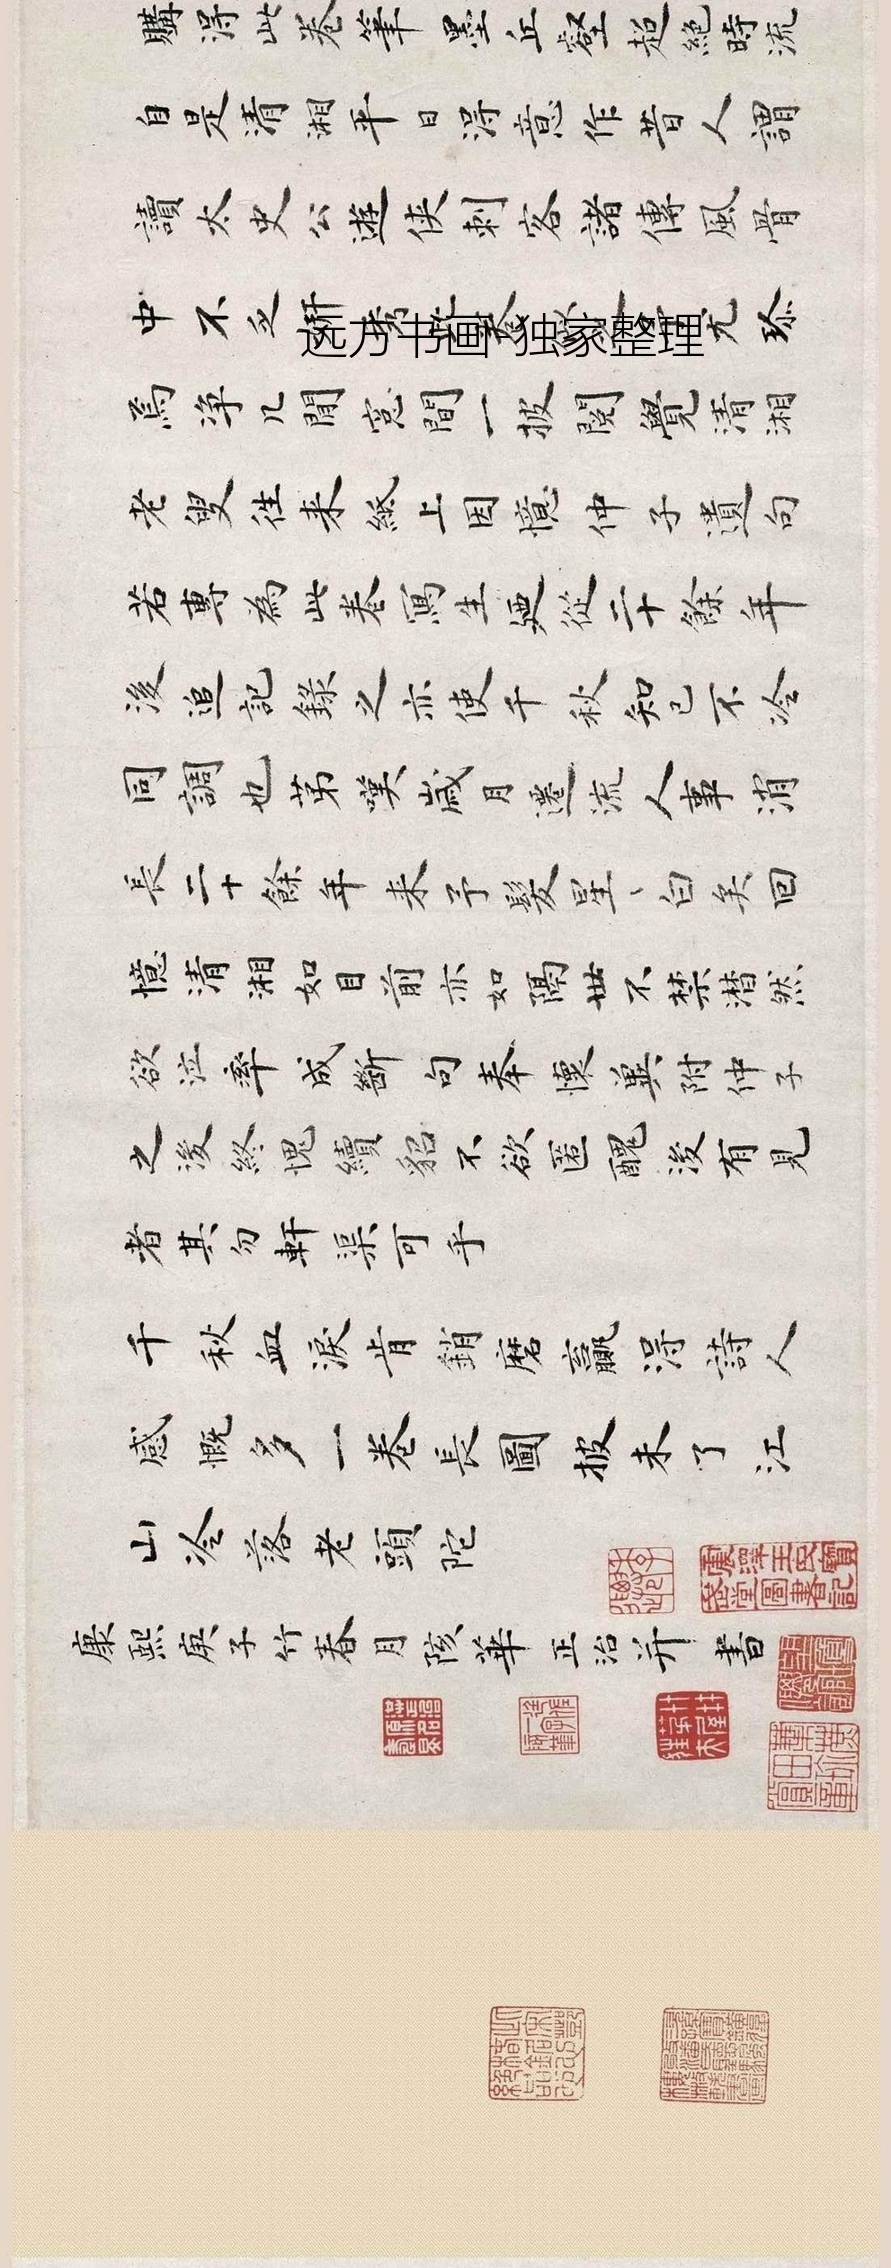 購得此卷筆墨丘壑超絕時流
自是清湘平日得意作昔人謂
讀太史公遊俠刺客諸傳風骨
中不乏元珍
远方书画 独家整理
為淨几閒窓間一披閱覺清湘
老叟往来紙上因憶仲子遺句
若專為此卷寫生廼從二十餘年
後追記錄之亦使千秋知己不冷
同調也苐嘆歲月遷流人事消
長二十餘年来予髮星丶白矣回
憶清湘如目前亦如隔世不禁潸然
欲泣率成斷句奉懷兼附仲子
之後終愧續貂不欲匿醜後有見
者其勿軒渠可乎
千秋血淚肯銷磨贏得詩人
感慨多一卷長圖披未了江
山冷落老頭陀
康熙庚子竹春月陔華正治并書
寶
王氏
圖書記